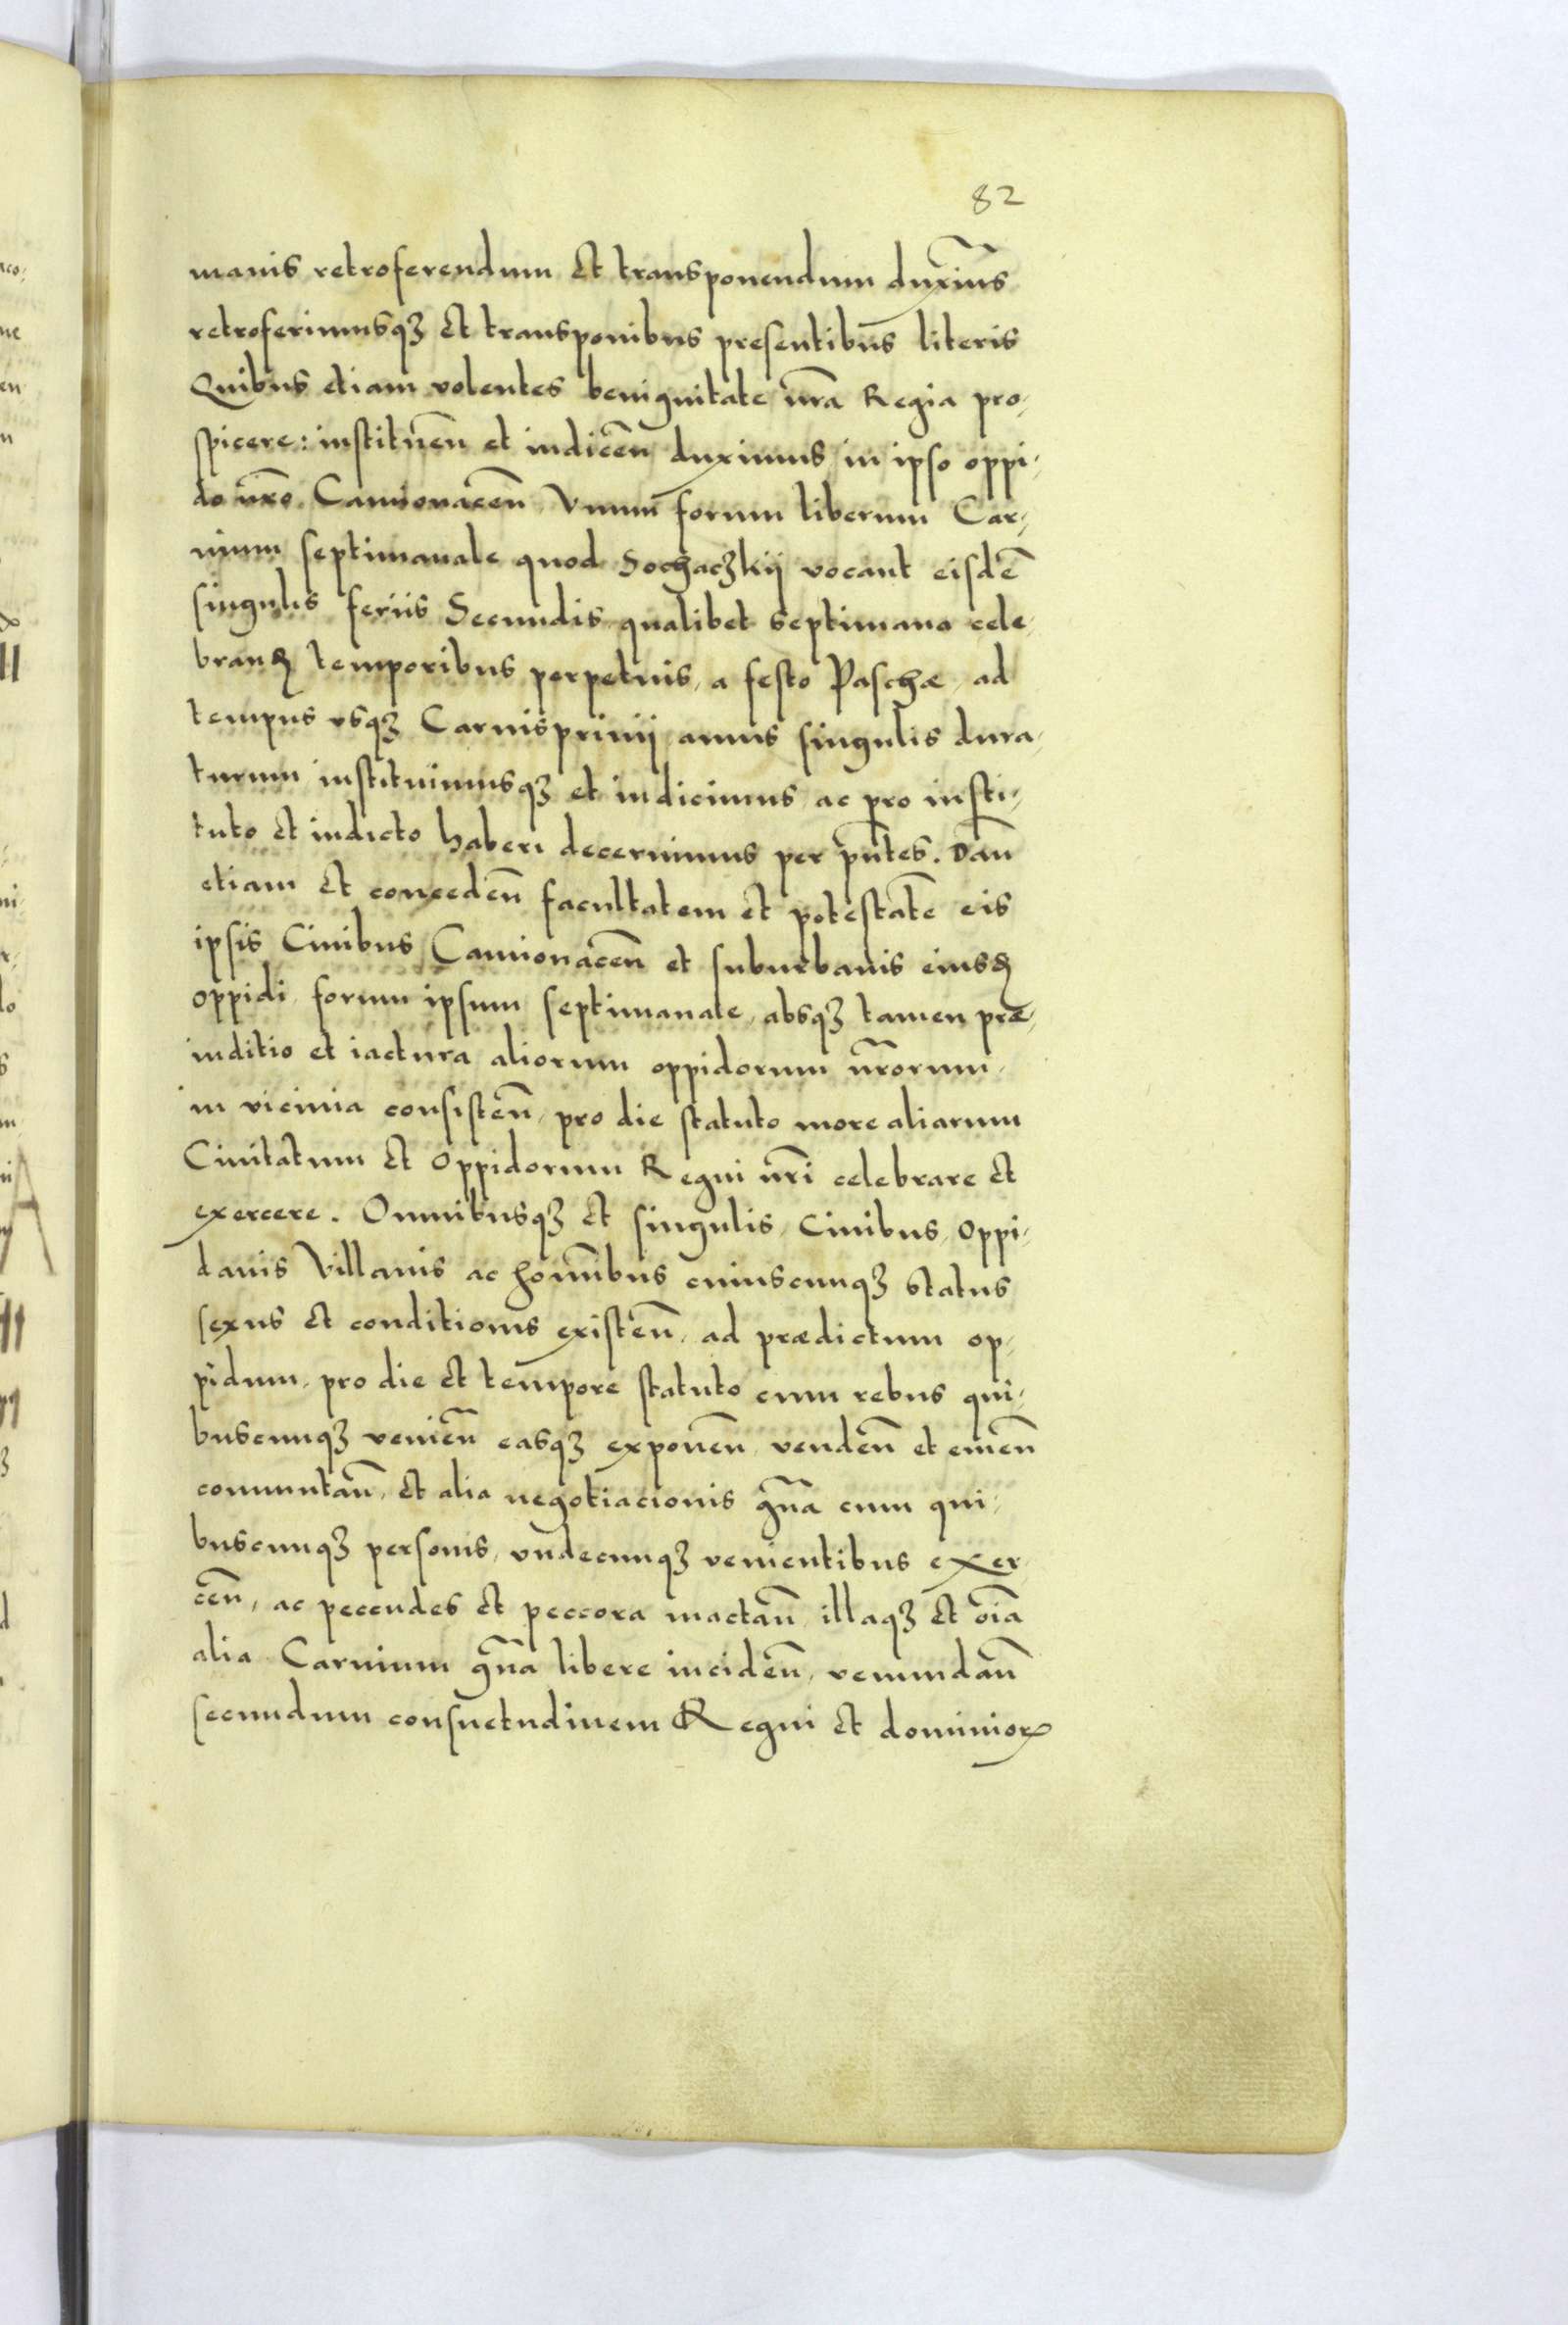 82
manis retroferendum et transponendum duxim̃s
retroferimusqꝫ et transponibus presentibus literis
Quibus etiam volentes benignitate nr̃a Regia pro-
spicere: instituen̄ et indicen̄ duximus in ipso oppi-
do nr̃o Camionacen̄ Vnum forum liberum Car-
nium septimanale quod Sochaczkij vocant eisdē
singulis feriis Secundis qualibet septimana cele-
branꝝ temporibus perpetuis, a festo Paschæ, ad
tempus vsqꝫ Carnispriuij annis singulis dura-
turum instituimusqꝫ et indicimus ac pro insti-
tuto et indicto haberi decernimus per pñtes. Dan̄
etiam et conceden̄ facultatem et potestatē eis
ipsis Ciuibus Camionacen̄ et suburbanis eiusꝝ
oppidi forum ipsum septimanale, absqꝫ tamen præ-
iuditio et iactura aliorum oppidorum nr̃orum
in vicinia consisten̄, pro die statuto more aliarum
Ciuitatum et Oppidorum Regni nr̃i celebrare et
exercere. Omnibusqꝫ et singulis, Ciuibus, Oppi-
danis Villanis ac hom̃ibus cuiuscunqꝫ status
sexus et conditionis existen̄, ad prædictum op-
pidum, pro die et tempore statuto cum rebus qui-
buscunqꝫ venien̄ easqꝫ exponen̄ venden̄ et emen̄
commutan̄, et alia negotiacionis gña cum qui-
buscunqꝫ personis, vndecunqꝫ venientibus exer-
cen̄, ac pecudes et peccora mactan̄ illaqꝫ et oĩa
alia Carnium gña libere inciden̄, venundan̄
secundum consuetudinem Regni et dominioꝝ